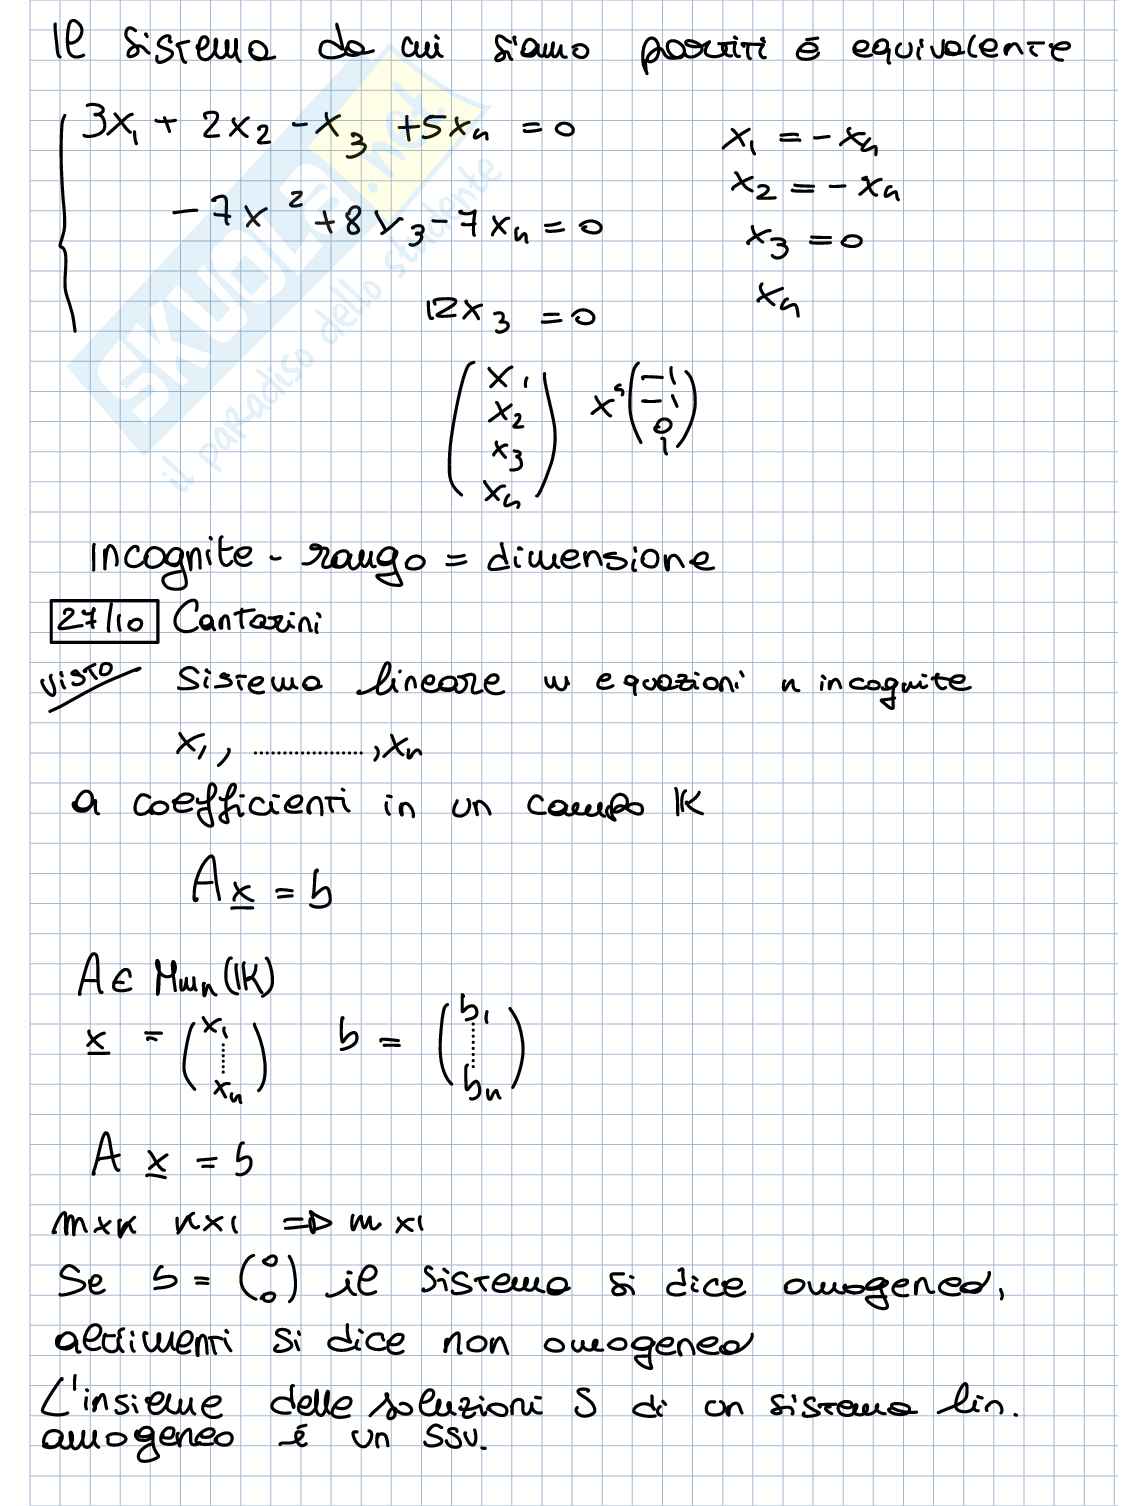 Il sistema da cui siamo partiti è equivalente
3x₁ + 2x₂ - x₃ + 5x₄ = 0
x₁ = - x₄
x₂ = - x₄
- 7x² + 8x₃ - 7x₄ = 0
x₃ = 0
x₄
12x₃ = 0
(x₁ x₂ x₃ x₄) x⁴ (-1 -1 0 1)
Incognite - rango = dimensione
27/10 Cantarini
VISTO Sistema lineare m equazioni n incognite
x₁, ..................., xₙ
a coefficienti in un campo IK
A x = b
A ∈ Mmn (IK)
x = (x₁ ...... xₙ) b = (b₁ ...... bn)
A x = b
m×n n×1 => m×1
Se b = (0 : 0) il sistema si dice omogeneo,
altrimenti si dice non omogeneo
L'insieme delle soluzioni S di un sistema lin.
omogeneo è un SSV.
SKUOLA.net
il paradiso dello studente